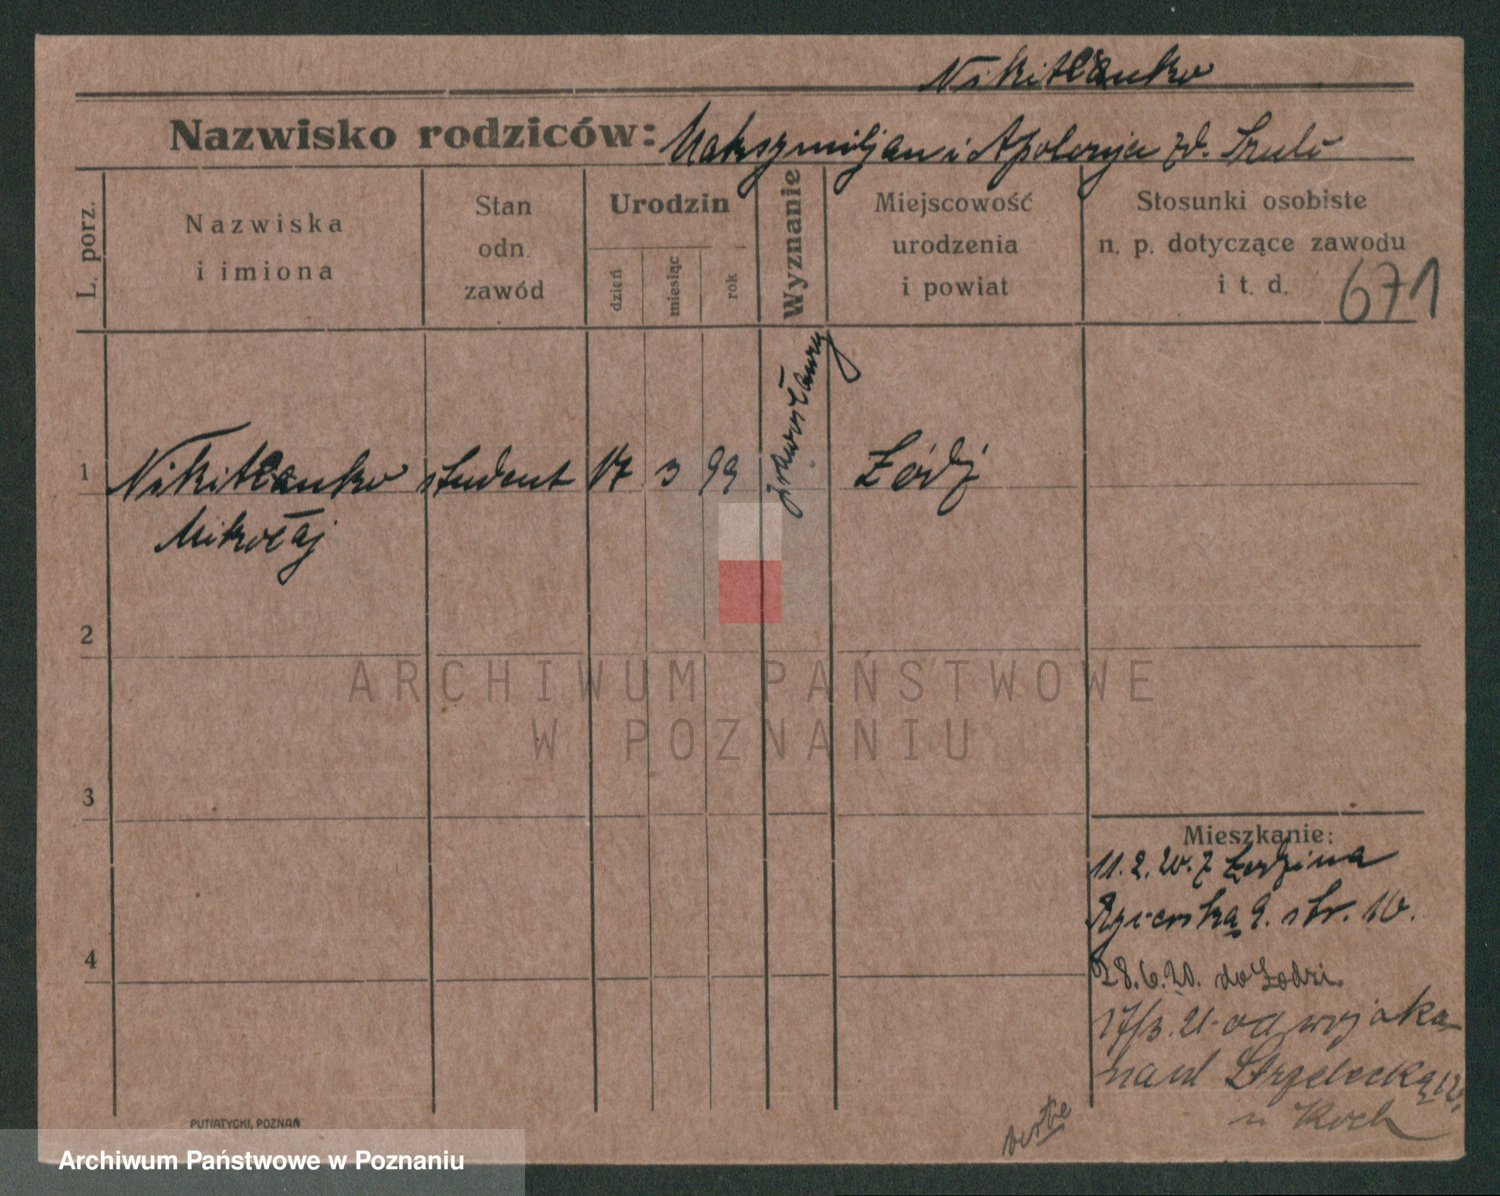 Nikitianko
Nazwisko rodziców: Maksymiljan i Apolonja zd. Szulc
L. porz.
Nazwiska
i imiona
Stan
odn.
zawód
Urodzin
dzień
miesiąc
rok
Wyznanie
Miejscowość
urodzenia
i powiat
Stosunki osobiste
n. p. dotyczące zawodu
i t. d.
671
1
Nikitianko student 17 3 99 prawosławny Łódź
Mikołaj
2
3
4
Mieszkanie:
11. 2. 20. z Łodzi na
9. 10.
28. 6. 20. do Łodzi.
17/3. 21 od wojska
na ul Strzelecką 12.
u Koch
PUTIATYCKI, POZNAŃ
ARCHIWUM PAŃSTWOWE
W POZNANIU
Archiwum Państwowe w Poznaniu